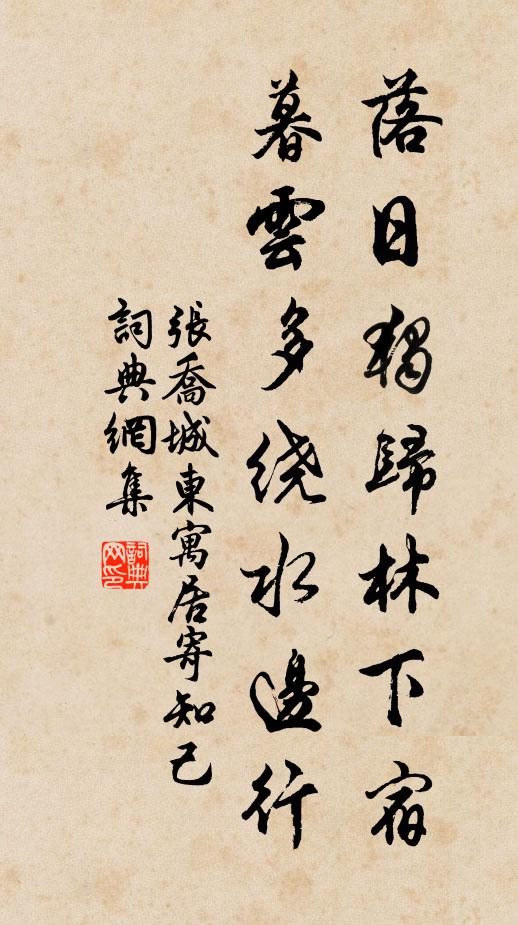 落日獨歸林下宿
暮雲多绕水邊行
張喬城東寓居寄知己
詞典網集
詞典網印